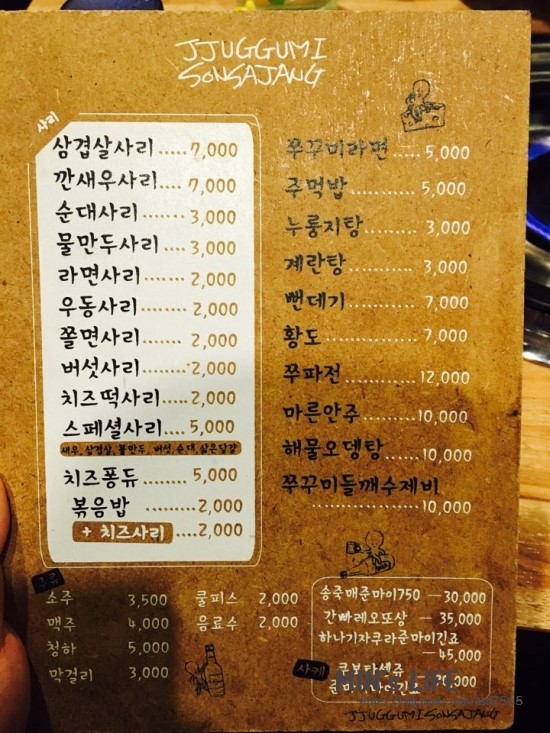 JJUGGUMI
SONSAJANG
사리
삼겹살사리.....7,000
깐새우사리....7,000
순대사리.......3,000
물만두사리....3,000
라면사리.......2,000
우동사리.......2,000
쫄면사리.......2,000
버섯사리.......2,000
치즈떡사리....2,000
스페셜사리....5,000
새우, 삼겹살, 물만두, 버섯, 순대, 삶은달걀
치즈퐁듀.......5,000
볶음밥.........2,000
+ 치즈사리....2,000
쭈꾸미라면.....5,000
주먹밥.........5,000
누룽지탕.......3,000
계란탕.........3,000
뻔데기.........7,000
황도...........7,000
쭈파전.........12,000
마른안주.......10,000
해물오뎅탕.....10,000
쭈꾸미들깨수제비
...............10,000
소주 3,500
맥주 4,000
청하 5,000
막걸리 3,000
쿨피스 2,000
음료수 2,000
송죽매준마이750 — 30,000
간빠레오또상 — 35,000
하나기자쿠라준마이긴죠
— 45,000
사케
쿠보타센쥬
MIN'S LIFE
JJUGGUMISONSAJANG